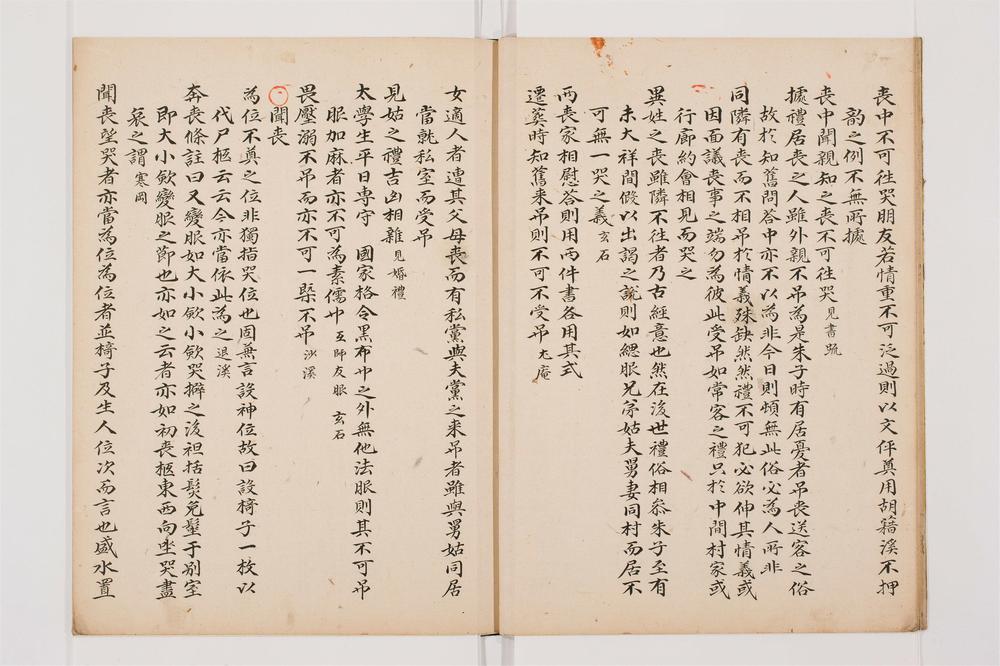 喪中不可往哭朋友若情重不可泛過則以文伻奠用胡籍溪不押
韵之例不無所據
喪中聞親知之喪不可往哭 見書䟽
據禮居喪之人雖外親不吊爲是朱子時有居憂者吊喪送客之俗
故於知舊問答中亦不以爲非今日則頓無此俗必爲人所非
同隣有喪而不相吊於情義殊缺然然禮不可犯必欲伸其情義或
因面議喪事之端勿爲彼此受吊如常客之禮只於中間村家或
行廊約會相見而哭之
異姓之喪雖隣不往者乃古經意也然在後世禮俗相叅朱子至有
未大祥間假以出謁之說則如緦服兄弟姑夫舅妻同村而居不
可無一哭之義 玄石
兩喪家相慰答則用兩件書各用其式
遷葬時知舊来吊則不可不受吊 尤庵
女適人者遭其父母喪而有私黨與夫黨之来吊者雖與舅姑同居
當就私室而受吊
見姑之禮吉凶相雜 見婚禮
太學生平日專守 國家格令黑布巾之外無他法服則其不可吊
服加麻者亦不可爲素儒巾 互師友服 玄石
畏壓溺不吊而亦不可一槩不吊 沙溪
聞喪
爲位不奠之位非獨指哭位也固兼言設神位故曰設椅子一枚以
代尸柩云云今亦當依此爲之 退溪
奔喪條註曰又變服如大小斂小斂哭擗之後袒括髮免髽于別室
即大小斂變服之節也亦如之云者亦如初喪柩東西向坐哭盡
哀之謂 寒岡
聞喪望哭者亦當爲位爲位者並椅子及生人位次而言也盛水置